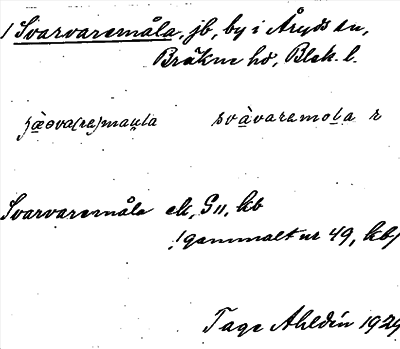 / Svarvaremåla, jb, by i Åryds sn,
Bräkne hd, Blek. l.
svàvaremola r
Svarvaremåla ek, G11, kb
/gammalt nr 49, kb/
Tage Ahldén 1929